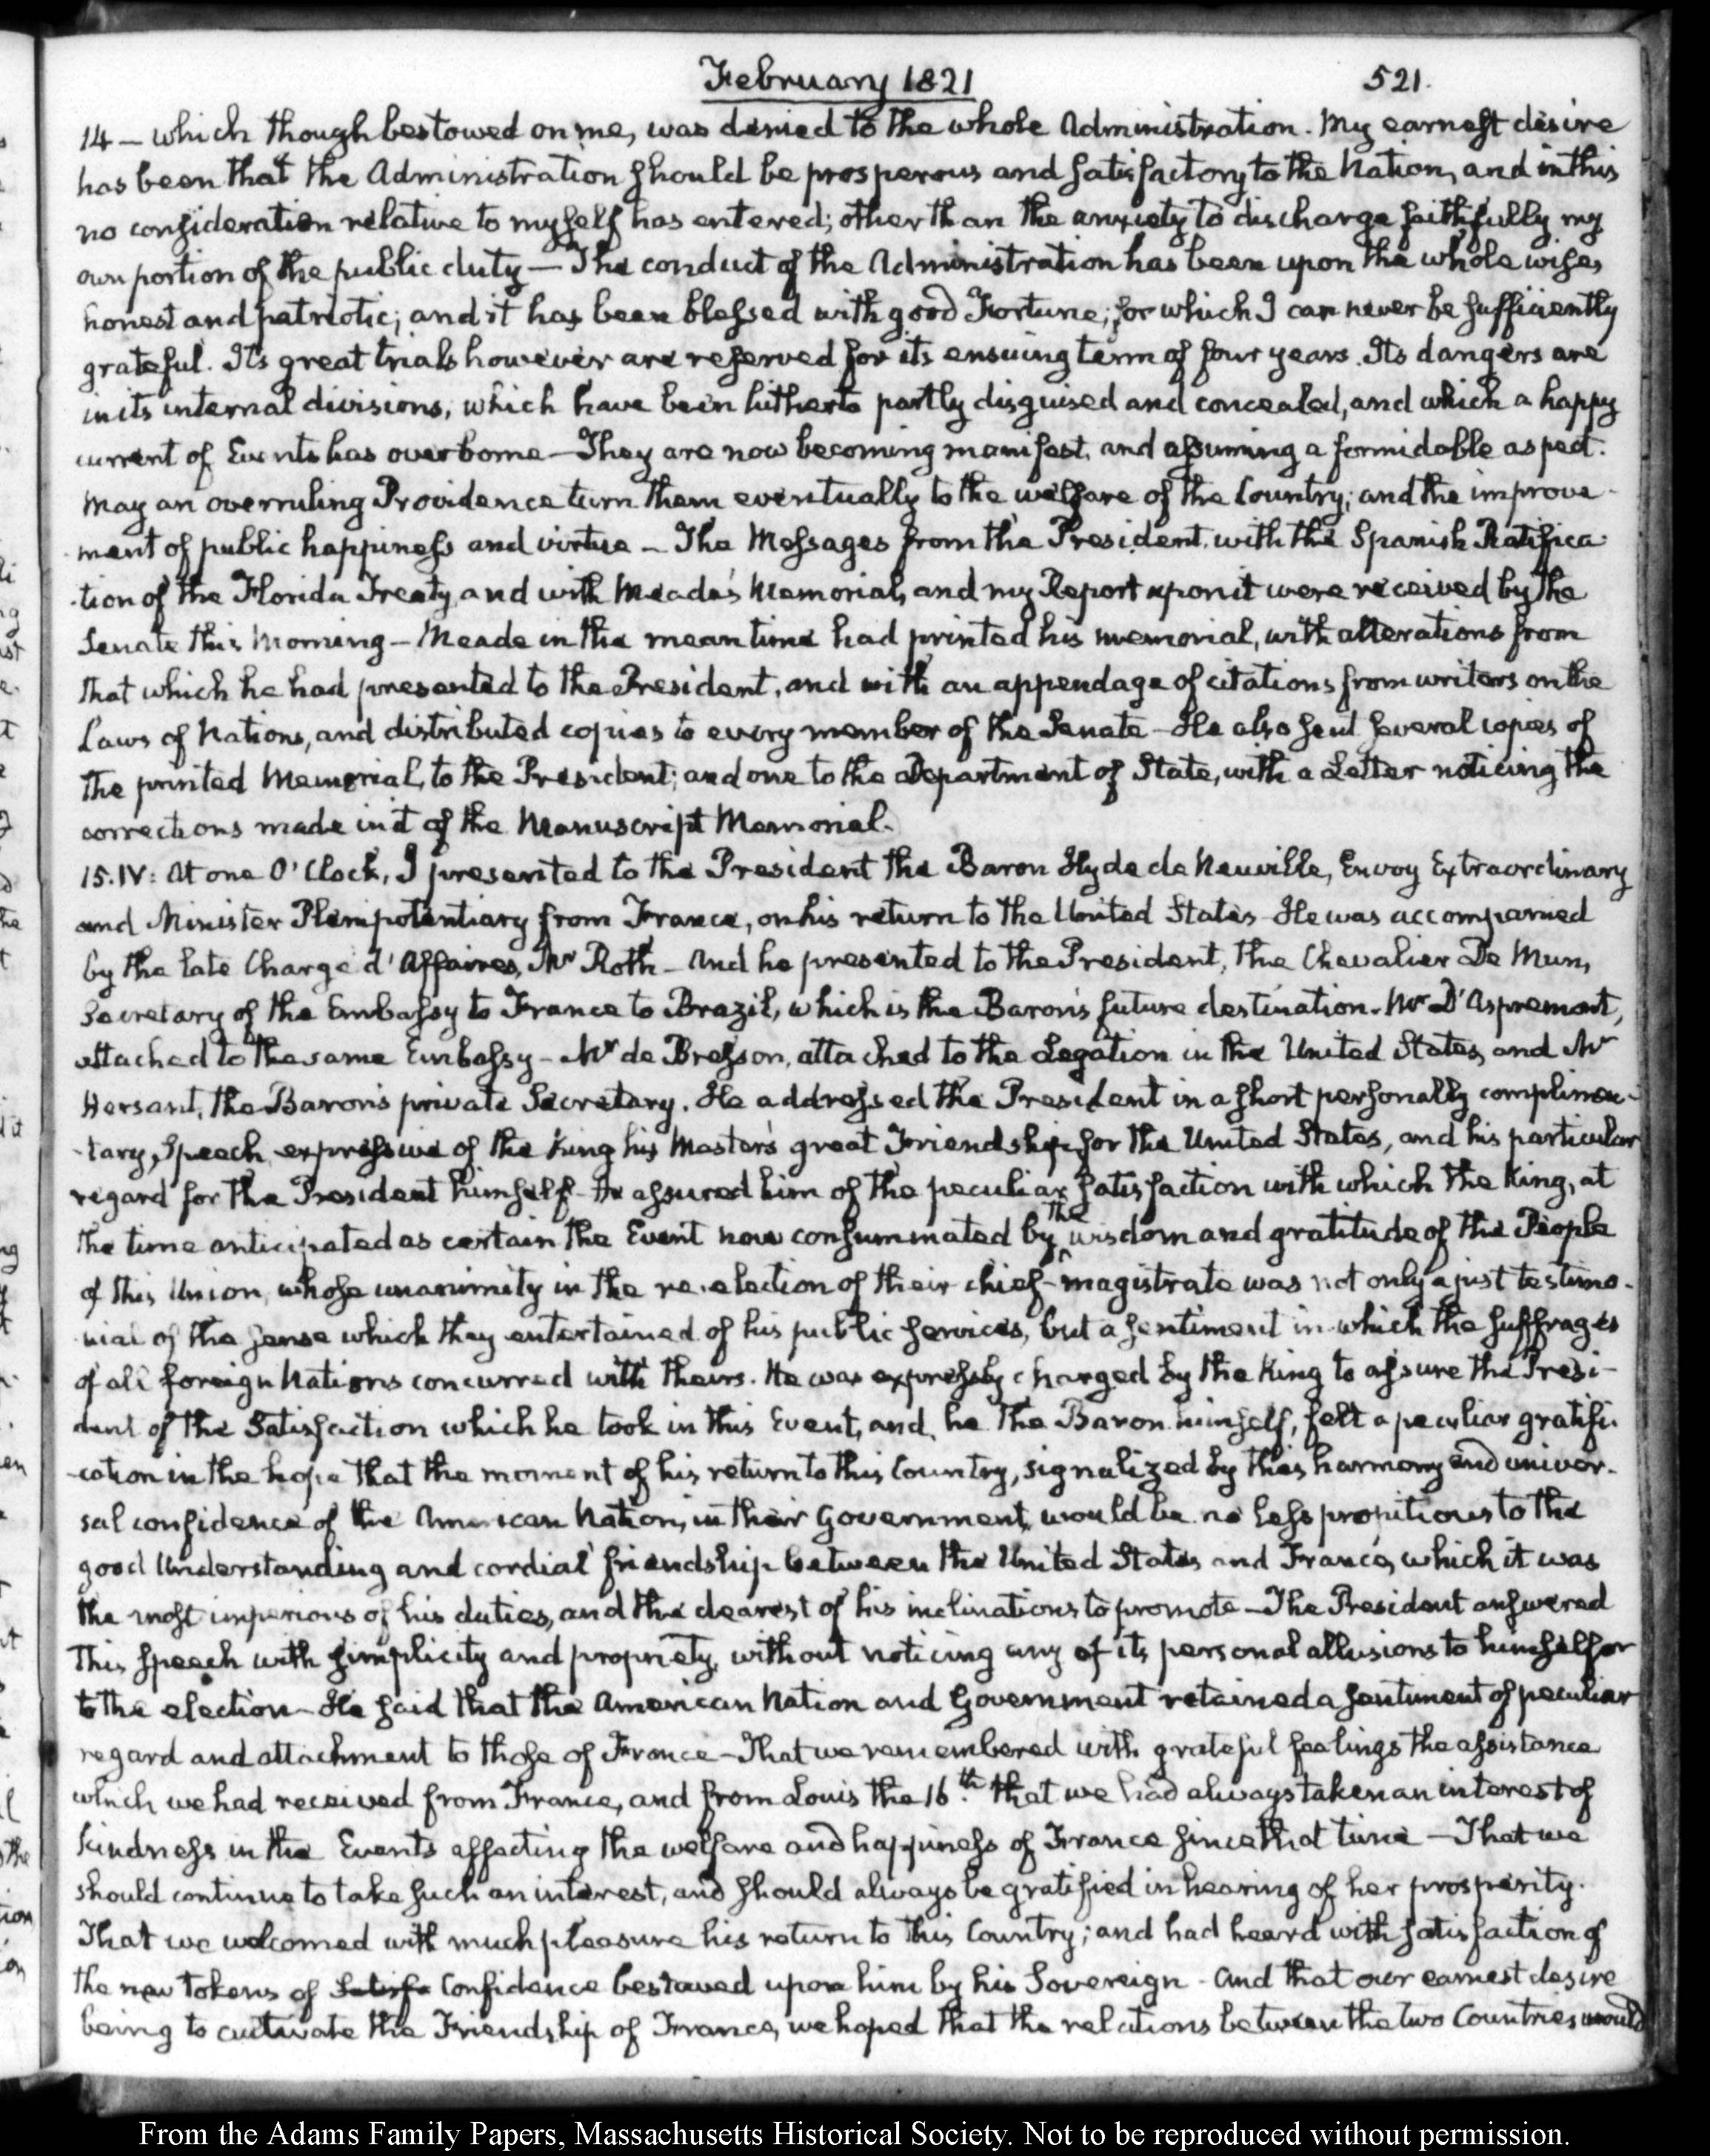 February 1821
521.
14 — which though bestowed on me, was denied to the whole Administration. My earnest desire
has been that the Administration should be prosperous and satisfactory to the Nation, and in this
no consideration relative to myself has entered; other than the anxiety to discharge faithfully my
own portion of the public duty — The conduct of the Administration has been upon the whole wise,
honest and patriotic; and it has been blessed with good Fortune; for which I can never be sufficiently
grateful. Its great trials however are reserved for its ensuing term of four years. Its dangers are
in its internal divisions, which have been hitherto partly disguised and concealed, and which a happy
current of Events has overborne — They are now becoming manifest, and assuming a formidable aspect.
May an overruling Providence turn them eventually to the welfare of the Country; and the improve-
ment of public happiness and virtue — The Messages from the President, with the Spanish Ratifica-
-tion of the Florida Treaty, and with Meade's Memorial, and my Report upon it were received by the
Senate this Morning — Meade in the mean time had printed his memorial, with alterations from
that which he had presented to the President, and with an appendage of citations from writers on the
Laws of Nations, and distributed copies to every member of the Senate — He also sent several copies of
the printed Memorial, to the President; and one to the Department of State, with a Letter noticing the
corrections made in it of the Manuscript Memorial.
15. IV: At one O'Clock, I presented to the President the Baron Hyde de Neuville, Envoy Extraordinary
and Minister Plenipotentiary from France, on his return to the United States — He was accompanied
by the late Chargé d'Affaires, Mr Roth — And he presented to the President, the Chevalier De Mun,
Secretary of the Embassy to France to Brazil, which is the Baron's future destination. Mr D'Aspremont,
attached to the same Embassy — Mr de Bresson, attached to the Legation in the United States, and Mr
Hersant, the Baron's private Secretary. He addressed the President in a short personally complimen-
-tary, Speech, expressive of the King his Master's great Friendship for the United States, and his particular
regard for the President himself — He assured him of the peculiar satisfaction with which the King, at
the time anticipated as certain the Event now consummated by the wisdom and gratitude of the People
of this Union, whose unanimity in the re-election of their chief-magistrate was not only a just testimo-
nial of the sense which they entertained of his public services, but a sentiment in which the suffrages
of all foreign Nations concurred with theirs. He was expressly charged by the King to assure the Presi-
dent of the Satisfaction which he took in this Event, and, he the Baron himself, felt a peculiar gratifi-
-cation in the hope that the moment of his return to this Country, signalized by this harmony and univer-
sal confidence of the American Nation, in their Government, would be no less propitious to the
good Understanding and cordial friendship between the United States and France, which it was
the most imperious of his duties, and the dearest of his inclinations to promote — The President answered
this speech with simplicity and propriety, without noticing any of its personal allusions to himself or
to the election — He said that the American Nation and Government retained a sentiment of peculiar
regard and attachment to those of France — That we remembered with grateful feelings the assistance
which we had received from France, and from Louis the 16th. that we had always taken an interest of
kindness in the Events affecting the welfare and happiness of France since that time — That we
should continue to take such an interest, and should always be gratified in hearing of her prosperity.
That we welcomed with much pleasure his return to this Country; and had heard with satisfaction of
the new tokens of Satisfa Confidence bestowed upon him by his Sovereign — And that our earnest desire
being to cultivate the Friendship of France, we hoped that the relations between the two Countries would
From the Adams Family Papers, Massachusetts Historical Society. Not to be reproduced without permission.